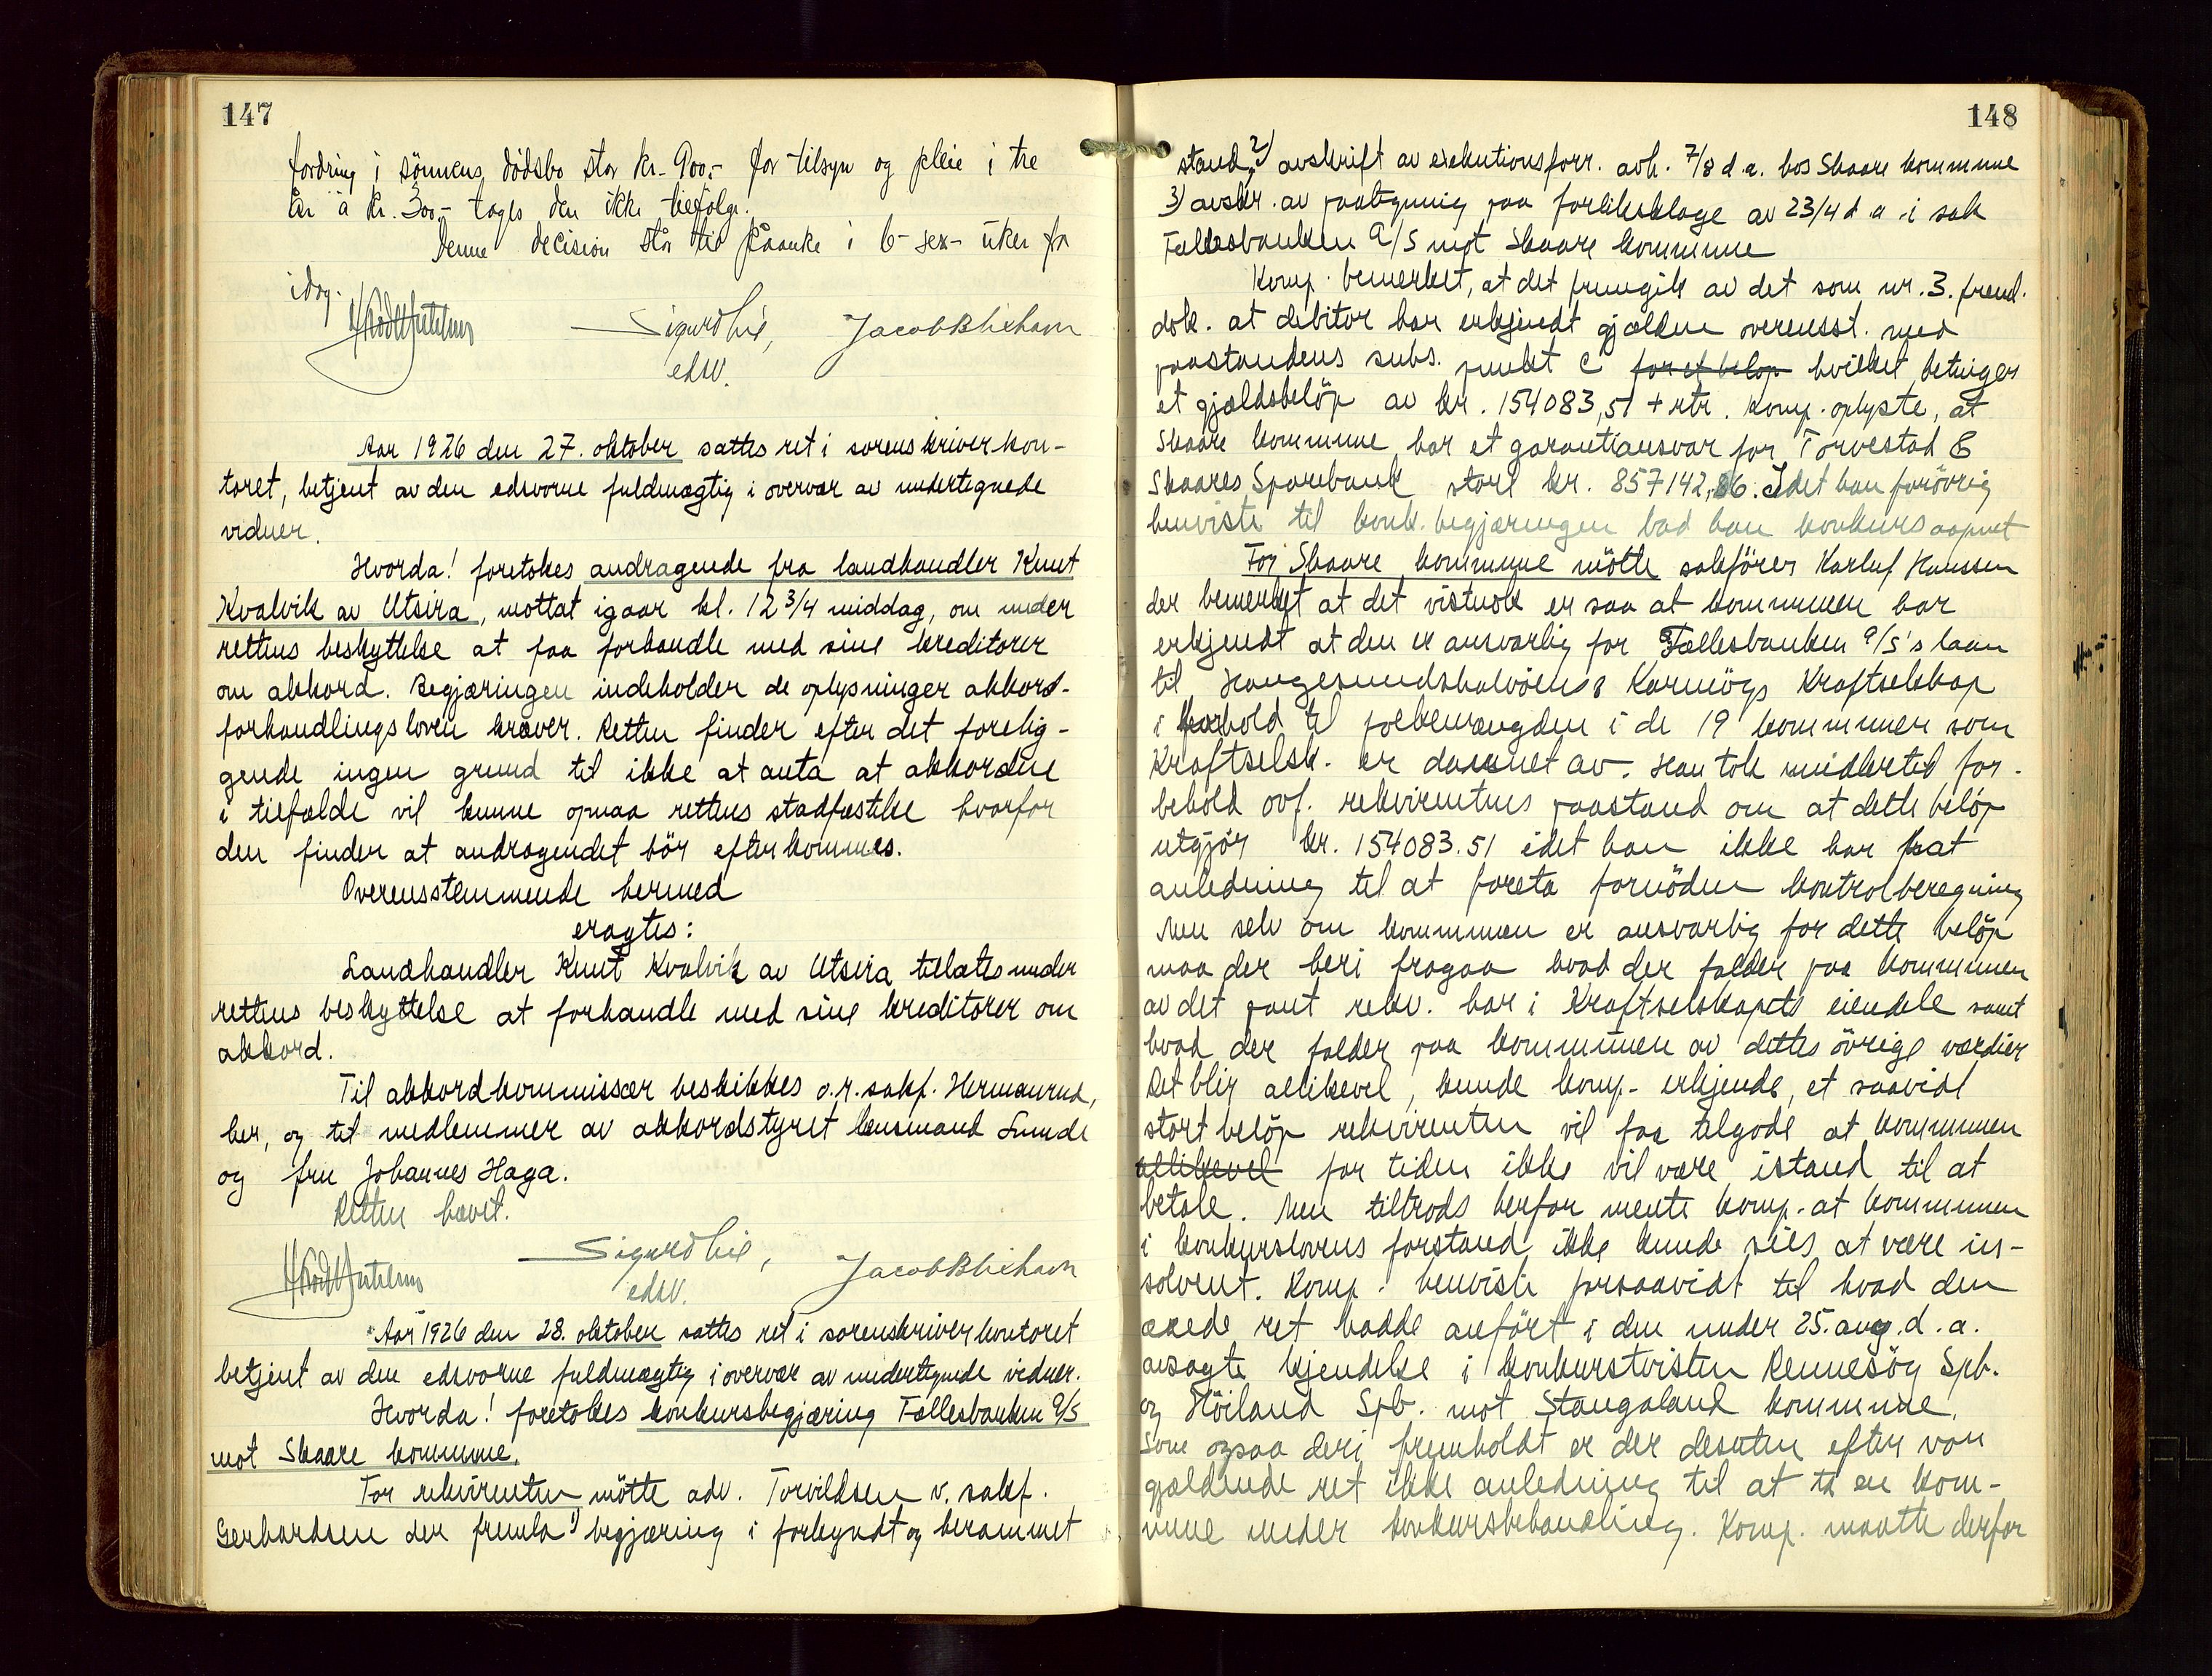 147
fordring i sönnens dödsbo stor kr. 900,- for tilsyn og pleie i tre
år à kr. 300,- tages den ikke tilfölge.
Denne decision står til påanke i 6-sex-uker fra
idag.
Sigurd Lie, Jacob Blixhavn
edsv.
Aar 1926 den 27. oktober sattes ret i sorenskriverkon-
toret, betjent av den edsvorne fuldmægtig i overvær av undertegnede
vidner.
Hvorda! foretokes andragende fra landhandler Knut
Kvalvik av Utsira, mottat igaar kl. 12 3/4 middag, om under
rettens beskyttelse at faa forhandle med sine kreditorer
om akkord. Begjæringen indeholder de oplysninger akkord-
forhandlingsloven kræver. Retten finder efter det forelig-
gende ingen grund til ikke at anta at akkorden
i tilfælde vil kunne opnaa rettens stadfæstelse hvorfor
den finder at andragendet bör efterkommes.
Overensstemmende hermed
eragtes:
Landhandler Knut Kvalvik av Utsira tillates under
rettens beskyttelse at forhandle med sine kreditorer om
akkord.
Til akkordkommissær beskikkes o.r.sakf. Hermanrud,
her, og til medlemmer av akkordstyret lensmand Lunde
og fru Johannes Haga.
Retten hævet.
Sigurd Lie, Jacob Blixhavn
edsv.
Aar 1926 den 28. oktober sattes ret i sorenskriverkontoret
betjent av den edsvorne fuldmægtig i overvær av undertegnede vidner.
Hvorda! foretokes konkursbegjæring Fællesbanken A/S
mot Skaare kommune.
For rekvirenten mötte adv. Torvildsen v. sakf.
Gerhardsen der fremla 1) begjæring i forkyndt og berammet
148
stand, 2) avskrift av exekutionsforr. avh. 7/8 d.a. hos Skaare kommune
3) avskr. av paategning paa forliksklage av 23/4 d.a. i sak
Fællesbanken A/S mot Skaare kommune
Komp. bemerket, at det fremgik av det som nr. 3. freml.
dok. at debitor har erkjendt gjælden overensst. med
paastandens subs. punkt C for et beløp hvilket betinger
et gjældsbelöp av kr. 154083,51 + rtr. Komp. oplyste, at
Skaare kommune har et garantiansvar for Torvestad &
Skaares Sparebank stort kr. 857142,86. Idet han forövrig
henviste til konk.begjæringen bad han konkurs aapnet
For Skaare kommune mötte sakförer Karluf Hanssen
der bemerket at det vistnok er saa at kommunen har
erkjendt at den er ansvarlig for Fællesbanken A/S's laan
til Haugesundshalvöens & Karmöys Kraftselskap
i forhold til folkemængden i de 19 kommuner som
Kraftselsk. er dannet av. Han tok imidlertid for-
behold ovf. rekvirentens paastand om at dette belöp
utgjör kr. 154083.51 idet han ikke har hat
anledning til at foreta fornöden kontrolberegning
Men selv om kommunen er ansvarlig for dette belöp
maa der heri fragaa hvad der falder paa kommunen
av det pant rekv. har i Kraftselskapets eiendele samt
hvad der falder paa kommunen av dettes övrige værdier
Det blir allikevel, kunde komp. erkjende, et saavidt
stort belöp rekvirenten vil faa tilgode at kommunen
allikevel for tiden ikke vil være istand til at
betale. Men tiltrods herfor mente komp. at kommunen
i konkurslovens forstand ikke kunde sies at være in-
solvent. Komp. henviste forsaavidt til hvad den
ærede ret hadde anfört i den under 25. aug. d.a.
avsagte kjendelse i konkurstvisten Rennesöy Spb.
og Höiland Spb. mot Stangaland kommune.
Som ogsaa deri fremholdt er der desuten efter vor
gjældende ret ikke anledning til at ta en kom-
mune under konkursbehandling. Komp. maatte derfor